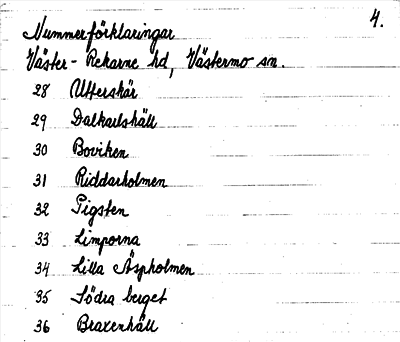 4.
Nummerförklaringar
Väster-Rekarne hd, Västermo sn.
28 Utterskär
29 Dalkarlshäll
30 Boviken
31 Riddarholmen
32 Pigsten
33 Limporna
34 Lilla Äspholmen
35 Södra berget
36 Braxenhäll